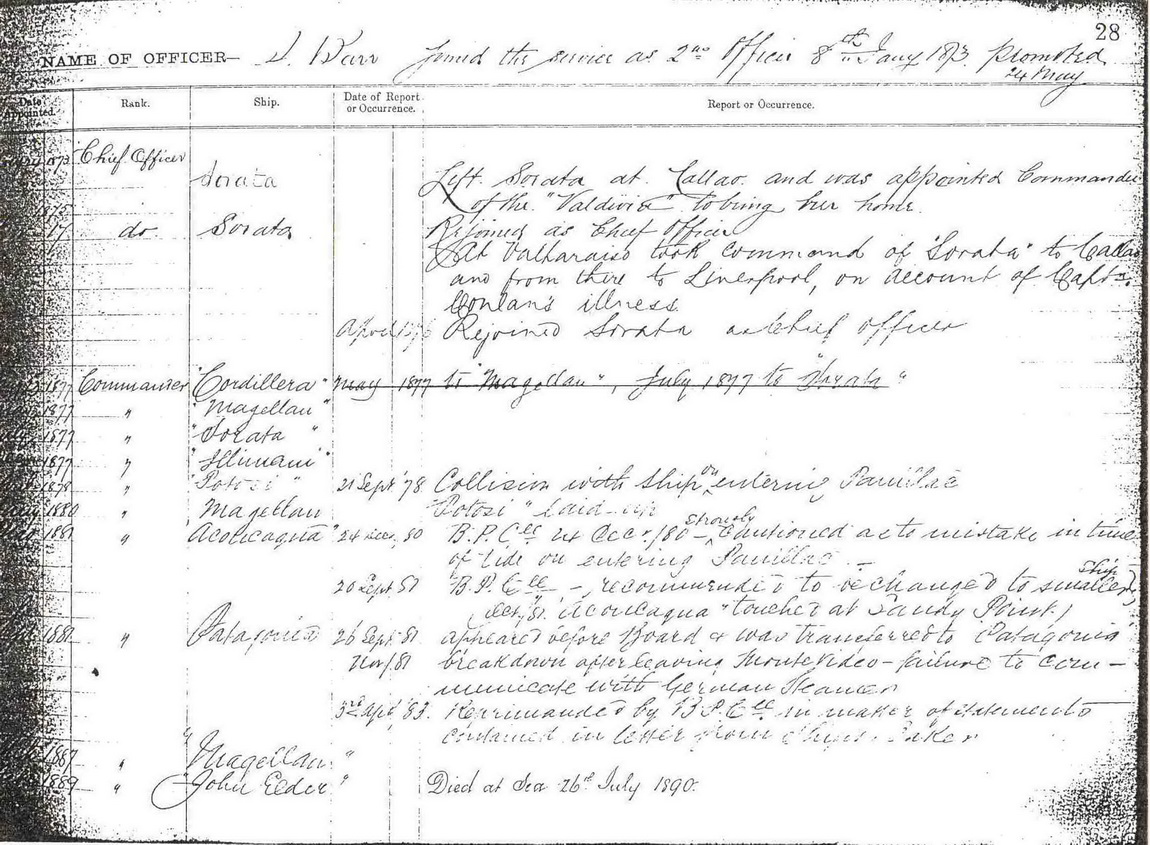 28
NAME OF OFFICER— J. Barr Joined the service as 2nd Officer 8th Jany 1873. promoted
24 May
Date Appointed. Rank. Ship. Date of Report or Occurrence. Report or Occurrence.
1873 Chief Officer
Sorata Left Sorata at Callao and was appointed Commander
of the "Valdivia" to bring her home.
do Sorata Rejoined as Chief Officer
At Valparaiso took command of "Sorata" to Callao
and from there to Liverpool, on account of Capt.
Conlan's illness
April 1876 Rejoined Sorata as chief officer
1877 Commander "Cordillera" May 1877 to "Magellan", July 1877 to "Sorata"
1877 " "Magellan"
1877 " "Sorata"
1877 " "Illimani"
1878 " "Potosi" 21 Sept '78 Collision with ship on entering Pauillac
1880 " Magellan "Potosi" laid-up
1881 " Aconcagua 24 Dec. 80 B.P. Cee 24 Dec/80 - seriously cautioned as to mistake in time
of tide on entering Pauillac -
20 Sept 81 B.P. Cee -, recommended to be changed to smaller ship,
"Aconcagua" touched at Sandy Point)
1882 " Patagonia 26 Sept. 81 appeared before Board & was transferred to Patagonia
Nov/81 breakdown after leaving Monte Video - failure to com-
municate with German Steamer
3rd Apl '83. Reprimanded by B.P. Cee in matter of statements
contained in letter from
1887 " "Magellan"
1889 " "John Elder" Died at Sea 26th July 1890.